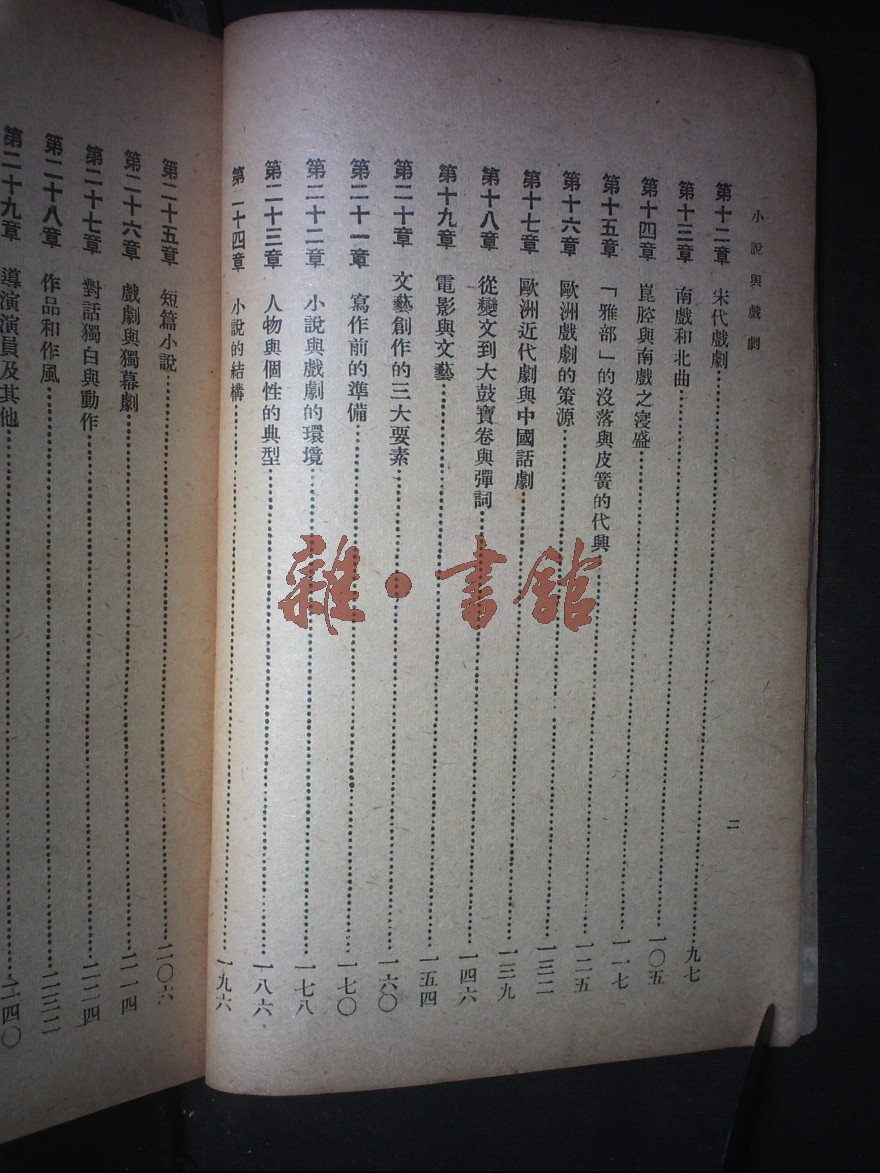 小說與戲劇
二
第十二章 宋代戲劇……九七
第十三章 南戲和北曲……一〇五
第十四章 崑腔與南戲之寖盛……一一七
第十五章 「雅部」的沒落與皮簧的代興……一二五
第十六章 歐洲戲劇的策源……一三二
第十七章 歐洲近代劇與中國話劇……一三九
第十八章 從變文到大鼓寶卷與彈詞……一四六
第十九章 電影與文藝……一五四
第二十章 文藝創作的三大要素……一六〇
第二十一章 寫作前的準備……一七〇
第二十二章 小說與戲劇的環境……一七八
第二十三章 人物與個性的典型……一八六
第二十四章 小說的結構……一九六
第二十五章 短篇小說……二〇六
第二十六章 戲劇與獨幕劇……二一四
第二十七章 對話獨白與動作……二二四
第二十八章 作品和作風……二三二
第二十九章 導演演員及其他……二四〇
雜·書館